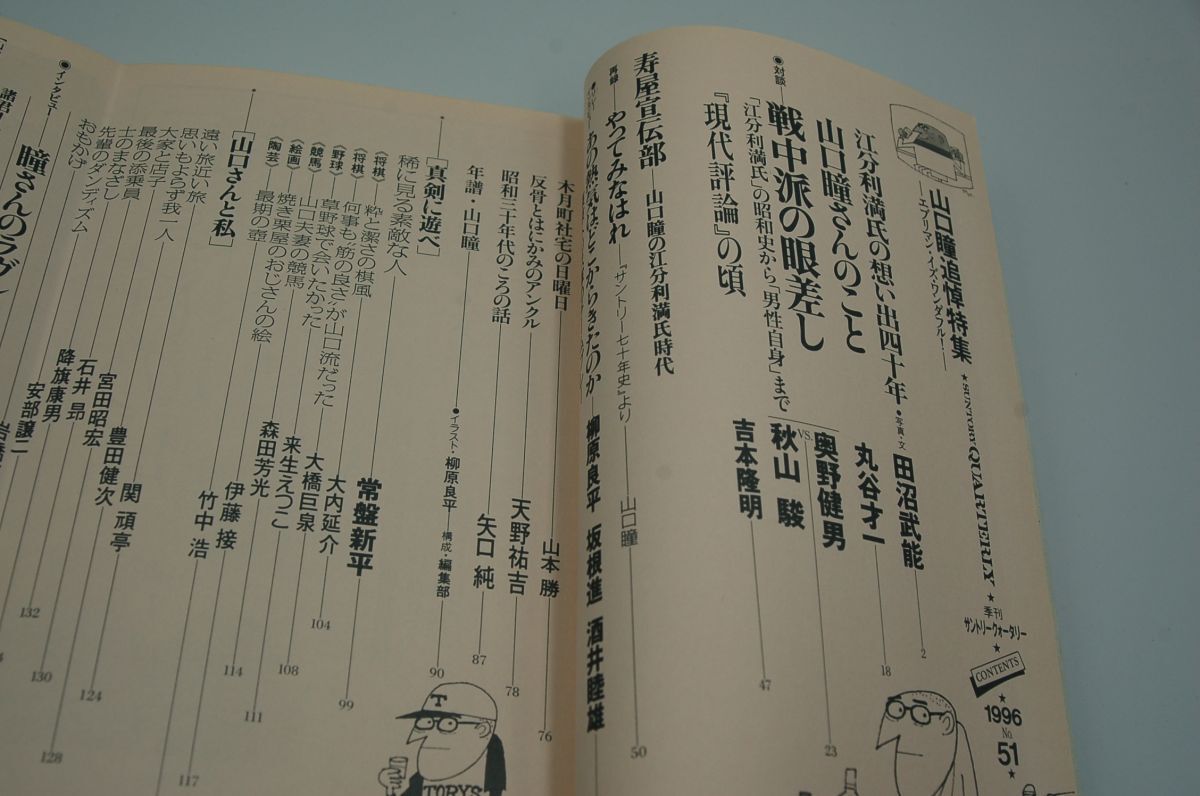 山口瞳追悼特集
―エブリマン・イズ・ワンダフル!―
★SUNTORY QUARTERLY★
季刊
サントリークォータリー
★
CONTENTS
★
1996
No.
51
★
江分利満氏の想い出四十年・写真・文 田沼武能 2
山口瞳さんのこと 丸谷才一 18
●対談 戦中派の眼差し 奥野健男 VS. 秋山 駿 23
「江分利満氏」の昭和史から「男性自身」まで
『現代評論』の頃 吉本隆明 47
寿屋宣伝部 ―山口瞳の江分利満氏時代
再録 やってみなはれ ―『サントリー七十年史』より 山口瞳 50
あの熱気はどこからきたのか 柳原良平 坂根進 酒井睦雄
木月町社宅の日曜日 山本 勝 76
反骨とはにかみのアンクル 天野祐吉 78
昭和三十年代のころの話 矢口 純 87
年譜・山口瞳 ●イラスト・柳原良平 構成・編集部 90
[真剣に遊べ]
稀に見る素敵な人 常盤新平 99
〈将棋〉 粋と潔さの棋風 大内延介 104
〈将棋〉 何事も「筋の良さ」が山口流だった
〈野球〉 草野球で会いたかった 大橋巨泉
〈競馬〉 山口夫妻の競馬 来生えつこ 108
〈絵画〉 焼き栗屋のおじさんの絵 森田芳光 111
〈陶芸〉 最期の壺 伊藤 接 114
[山口さんと私]
遠い旅近い旅 竹中 浩 117
思いもよらず我一人 関 頑亭
大家と店子 豊田健次 124
最後の添乗員 宮田昭宏 128
士のまなざし 石井 昂 130
先輩のダンディズム 降旗康男 132
おもかげ 安部譲二
●インタビュー
瞳さんのラヴ
諸君!
T
TORYS